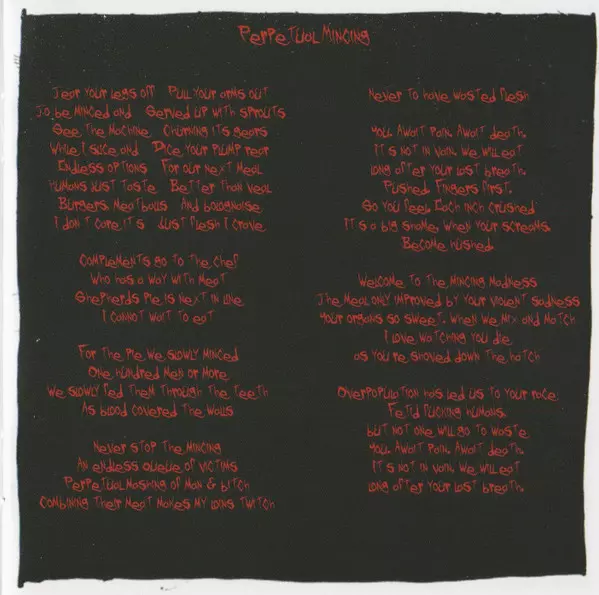 Perpetual Mincing
Tear your legs off Pull your arms out
To be minced and Served up with sprouts
See the machine Churning its gears
While I slice and Dice your plump rear
Endless options For our next meal
Humans just taste Better than veal
Burgers, Meatballs And bolognaise
I don't care it's Just flesh I crave
Complements go to the chef
Who has a way with meat
Shepherds pie is next in line
I cannot wait to eat
For the pie we slowly minced
One hundred men or more
We slowly fed them through the teeth
As blood covered the walls
Never stop the mincing
An endless queue of victims
Perpetual mashing of man & bitch
Combining their meat makes my loins twitch
Never to have wasted flesh
You. Await pain. Await death.
It's not in vain. We will eat
long after your last breath.
Pushed. Fingers first.
So you feel. Each inch crushed
It's a big shame, when your screams.
Become hushed.
Welcome to the mincing madness
The meal only improved by your violent sadness
Your organs so sweet. When we mix and match
I love watching you die
as you're shoved down the hatch
Overpopulation has led us to your race
Fetid fucking humans.
but not one will go to waste
You. Await pain. Await death.
It's not in vain. We will eat
long after your last breath.